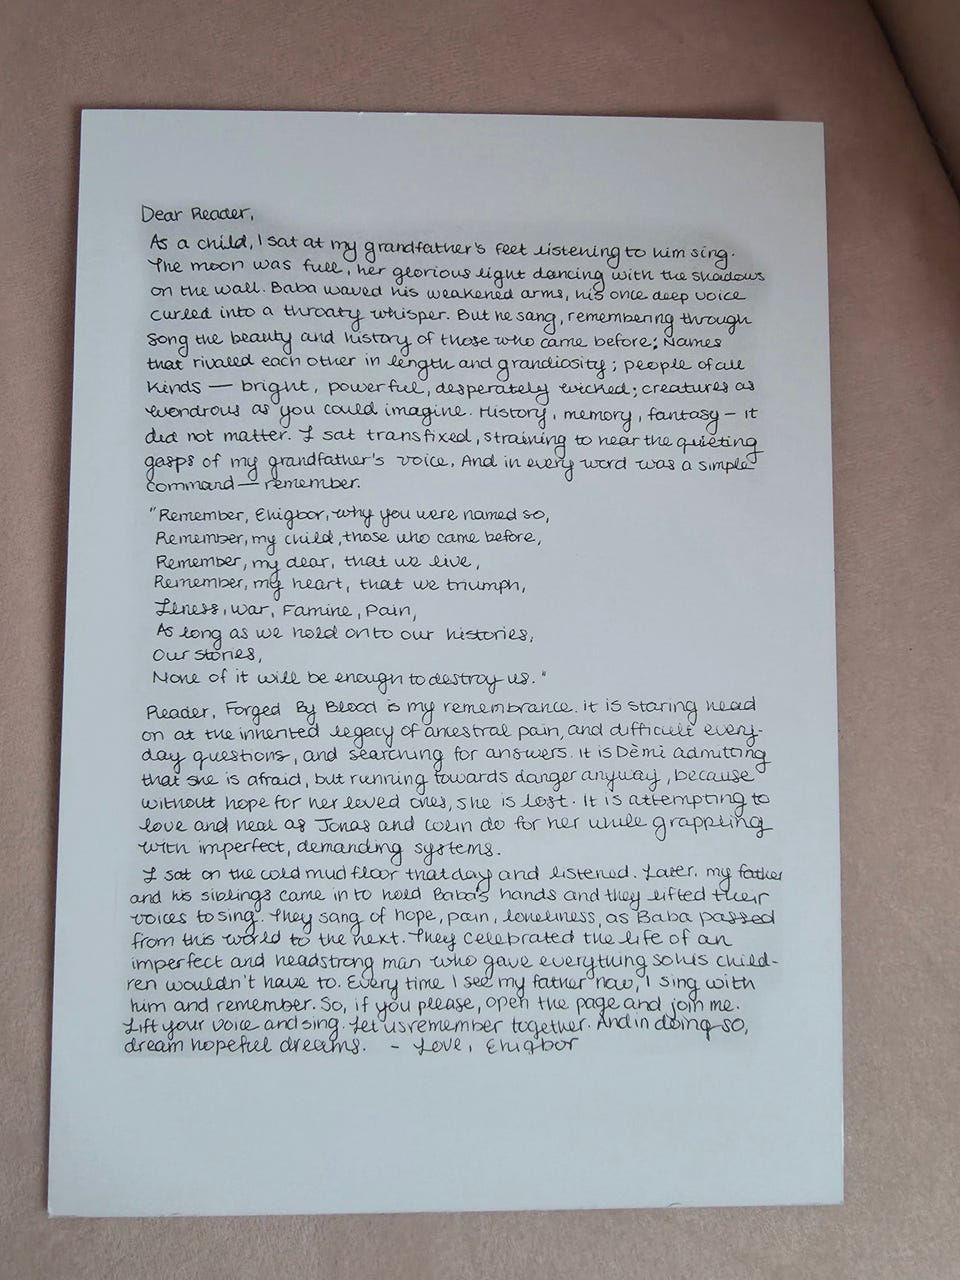 Dear Reader,
As a child, I sat at my grandfather's feet listening to him sing.
The moon was full, her glorious light dancing with the shadows
on the wall. Baba waved his weakened arms, his once deep voice
curled into a throaty whisper. But he sang, remembering through
song the beauty and history of those who came before; Names
that rivaled each other in length and grandiosity; people of all
kinds — bright, powerful, desperately wicked; creatures as
wondrous as you could imagine. History, memory, fantasy — it
did not matter. I sat transfixed, straining to hear the quieting
gasps of my grandfather's voice. And in every word was a simple
command — remember.
"Remember, Ehigbor, why you were named so,
Remember, my child, those who came before,
Remember, my dear, that we live,
Remember, my heart, that we triumph,
Illness, War, Famine, Pain,
As long as we hold onto our histories,
Our stories,
None of it will be enough to destroy us."
Reader, Forged By Blood is my remembrance. it is staring head
on at the inherited legacy of ancestral pain, and difficult every-
day questions, and searching for answers. It is Dèmi admitting
that she is afraid, but running towards danger anyway, because
without hope for her loved ones, she is lost. It is attempting to
love and heal as Jonas and Colin do for her while grappling
with imperfect, demanding systems.
I sat on the cold mud floor that day and listened. Later, my father
and his siblings came in to hold Baba's hands and they lifted their
voices to sing. They sang of hope, pain, loneliness, as Baba passed
from this world to the next. They celebrated the life of an
imperfect and headstrong man who gave everything so his child-
ren wouldn't have to. Every time I see my father now, I sing with
him and remember. So, if you please, open the page and join me.
Lift your voice and sing. Let us remember together. And in doing so,
dream hopeful dreams. - Love, Ehigbor